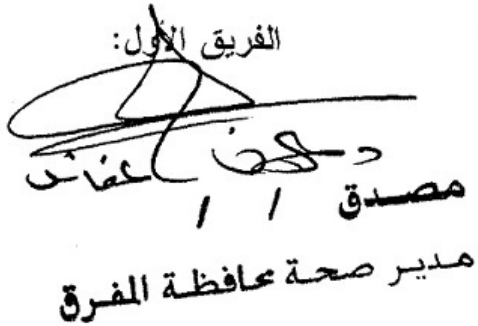 الفريق الأول:
مصدق / /
مدير صحة محافظة المفرق